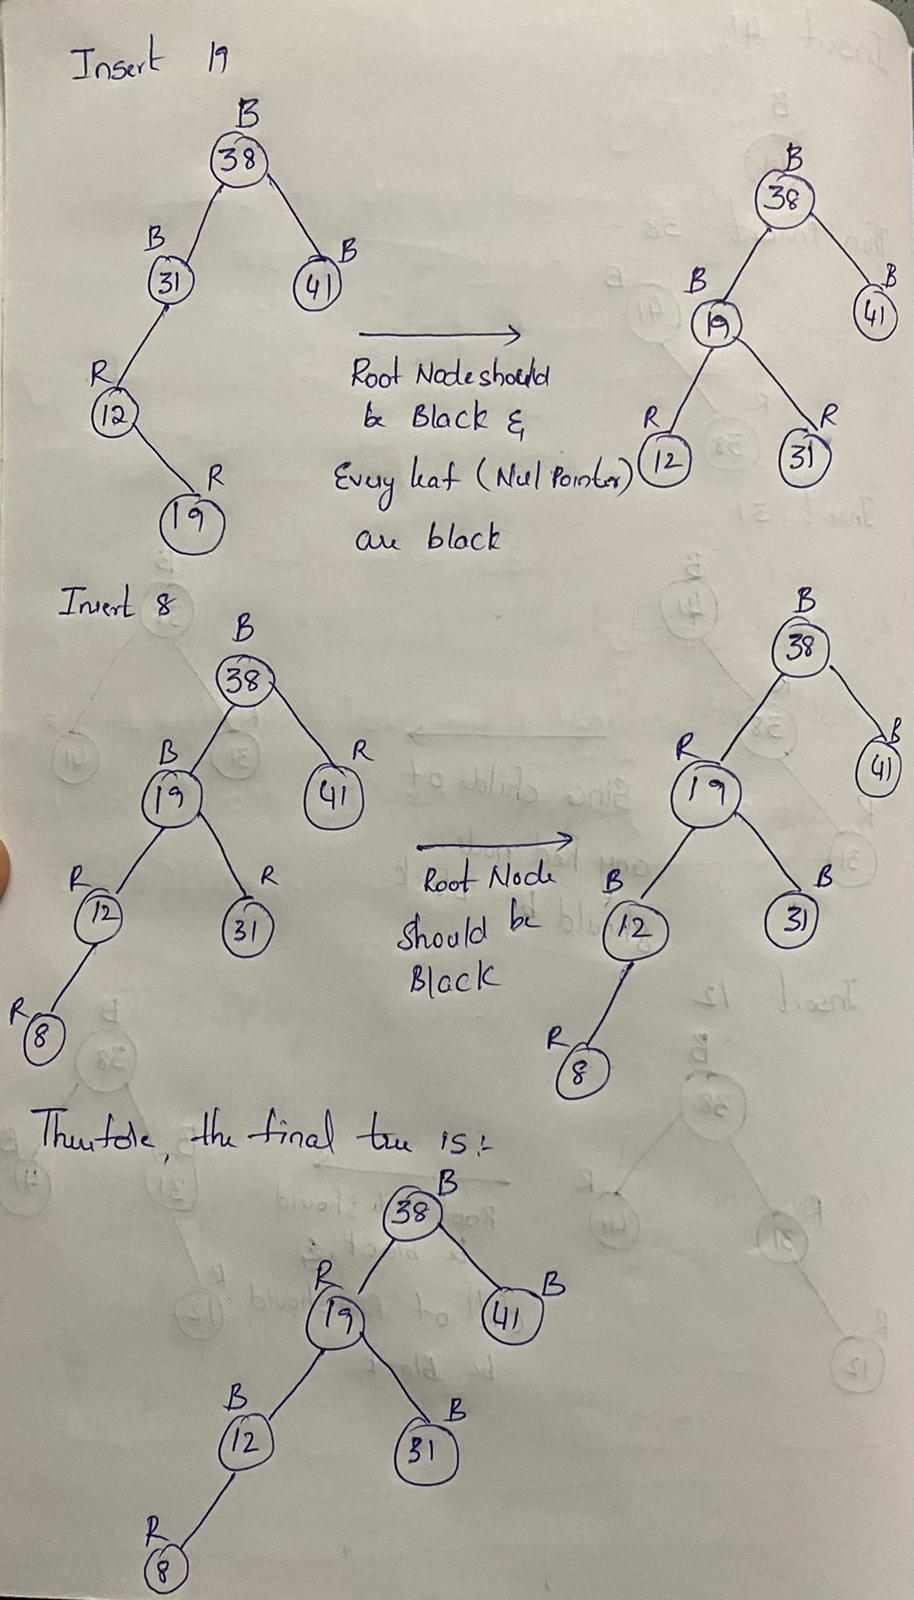 Insert 19
B
38
B
31
B
41
R
12
R
19
Root Node should
be Black &
Every leaf (Nul Pointer)
are black
B
38
B
19
B
41
R
12
R
31
Insert 8
B
38
B
19
R
41
R
12
R
31
R
8
Root Node
should be
Black
B
38
R
19
B
41
B
12
B
31
R
8
Therefore, the final tree is:-
B
38
R
19
B
41
B
12
B
31
R
8